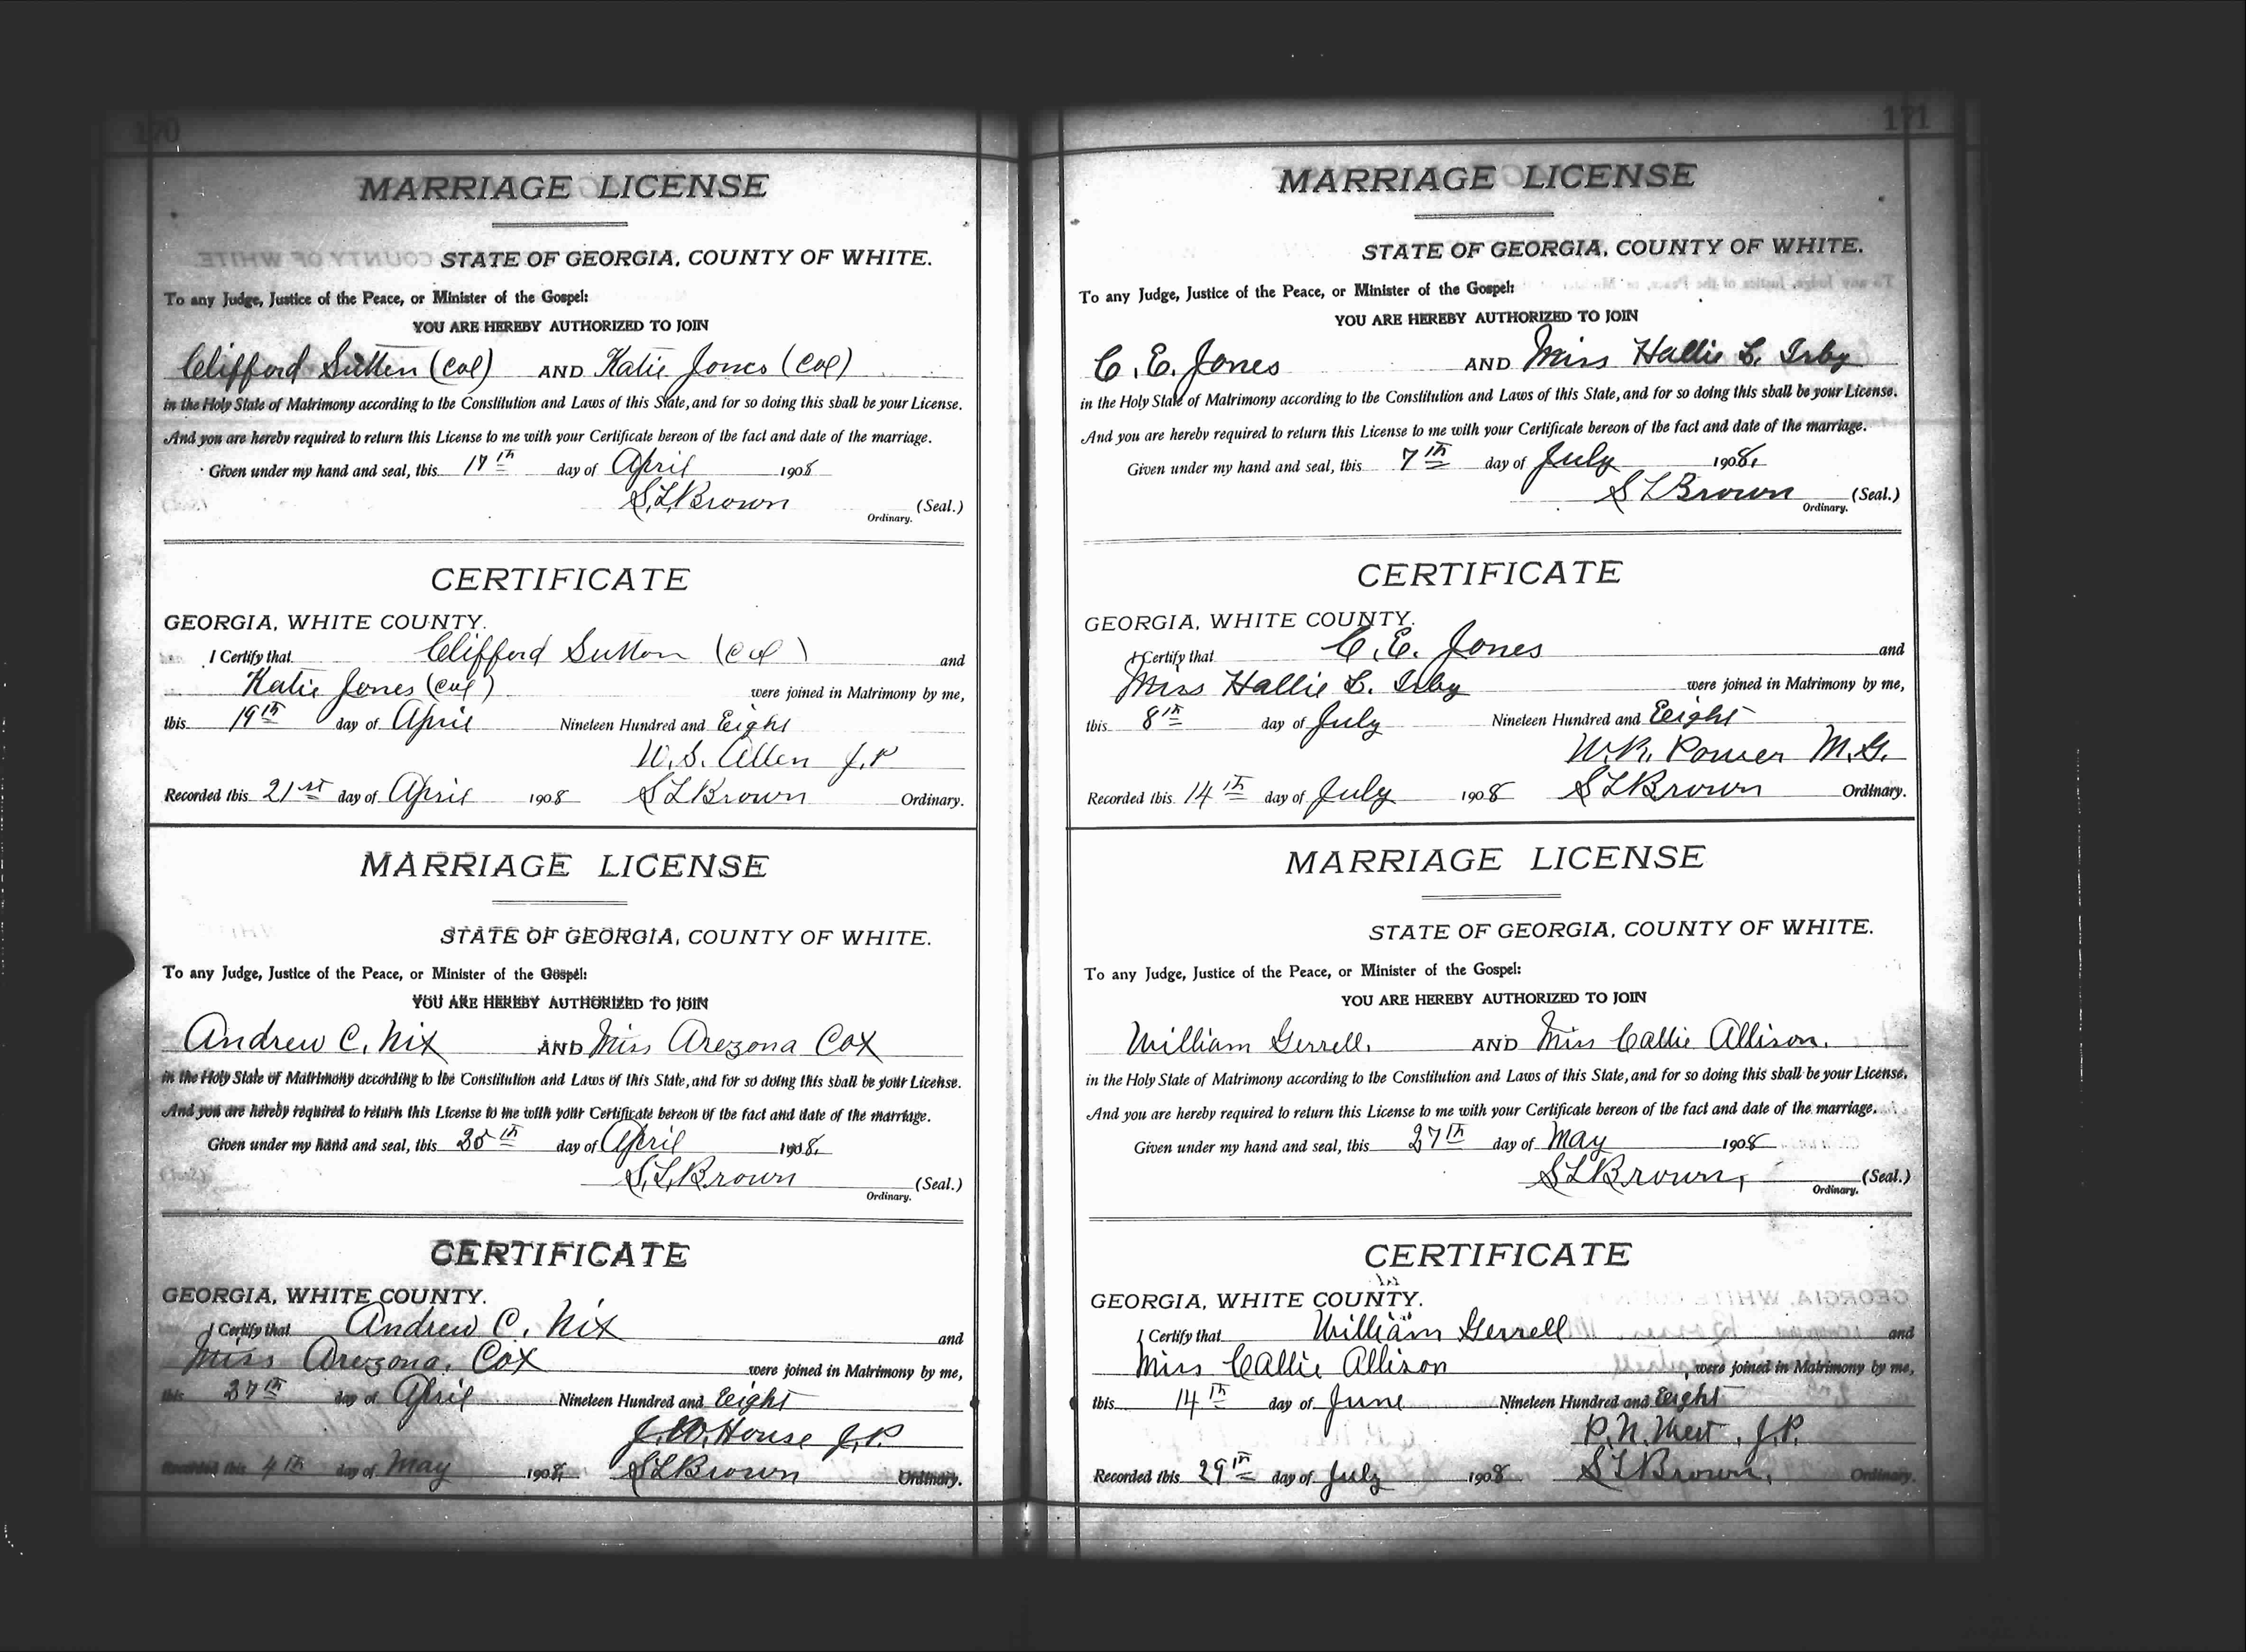 170
MARRIAGE LICENSE
STATE OF GEORGIA, COUNTY OF WHITE.
To any Judge, Justice of the Peace, or Minister of the Gospel:
YOU ARE HEREBY AUTHORIZED TO JOIN
Clifford Sutton (Col) AND Katie Jones (Col)
in the Holy State of Matrimony according to the Constitution and Laws of this State, and for so doing this shall be your License.
And you are hereby required to return this License to me with your Certificate hereon of the fact and date of the marriage.
Given under my hand and seal, this 17th day of April 1908
S.L. Brown (Seal.)
Ordinary.
CERTIFICATE
GEORGIA, WHITE COUNTY.
I Certify that Clifford Sutton (Col) and
Katie Jones (Col) were joined in Matrimony by me,
this 19th day of April Nineteen Hundred and Eight
W.S. Allen J.P
Recorded this 21st day of April 1908 S L Brown Ordinary.
MARRIAGE LICENSE
STATE OF GEORGIA, COUNTY OF WHITE.
To any Judge, Justice of the Peace, or Minister of the Gospel:
YOU ARE HEREBY AUTHORIZED TO JOIN
Andrew C. Nix AND Miss Arezona Cox
in the Holy State of Matrimony according to the Constitution and Laws of this State, and for so doing this shall be your License.
And you are hereby required to return this License to me with your Certificate hereon of the fact and date of the marriage.
Given under my hand and seal, this 25th day of April 1908.
S.L. Brown (Seal.)
Ordinary.
CERTIFICATE
GEORGIA, WHITE COUNTY.
I Certify that Andrew C. Nix and
Miss Arezona. Cox were joined in Matrimony by me,
this 27th day of April Nineteen Hundred and Eight
J.W. House J.P.
Recorded this 4th day of May 1908. S L Brown Ordinary.
171
MARRIAGE LICENSE
STATE OF GEORGIA, COUNTY OF WHITE.
To any Judge, Justice of the Peace, or Minister of the Gospel:
YOU ARE HEREBY AUTHORIZED TO JOIN
C. E. Jones AND Miss Hallie L. Irby
in the Holy State of Matrimony according to the Constitution and Laws of this State, and for so doing this shall be your License.
And you are hereby required to return this License to me with your Certificate hereon of the fact and date of the marriage.
Given under my hand and seal, this 7th day of July 1908.
S L Brown (Seal.)
Ordinary.
CERTIFICATE
GEORGIA, WHITE COUNTY.
I Certify that C. E. Jones and
Miss Hallie L. Irby were joined in Matrimony by me,
this 8th day of July Nineteen Hundred and Eight
W.R. Power M.G.
Recorded this 14th day of July 1908 S L Brown Ordinary.
MARRIAGE LICENSE
STATE OF GEORGIA, COUNTY OF WHITE.
To any Judge, Justice of the Peace, or Minister of the Gospel:
YOU ARE HEREBY AUTHORIZED TO JOIN
William Gerrell. AND Miss Callie Allison.
in the Holy State of Matrimony according to the Constitution and Laws of this State, and for so doing this shall be your License.
And you are hereby required to return this License to me with your Certificate hereon of the fact and date of the marriage.
Given under my hand and seal, this 27th day of May 1908
S L Brown, (Seal.)
Ordinary.
CERTIFICATE
GEORGIA, WHITE COUNTY.
I Certify that William Gerrell and
Miss Callie Allison were joined in Matrimony by me,
this 14th day of June Nineteen Hundred and Eight
P. N. West, J.P.
Recorded this 29th day of July 1908 S L Brown, Ordinary.